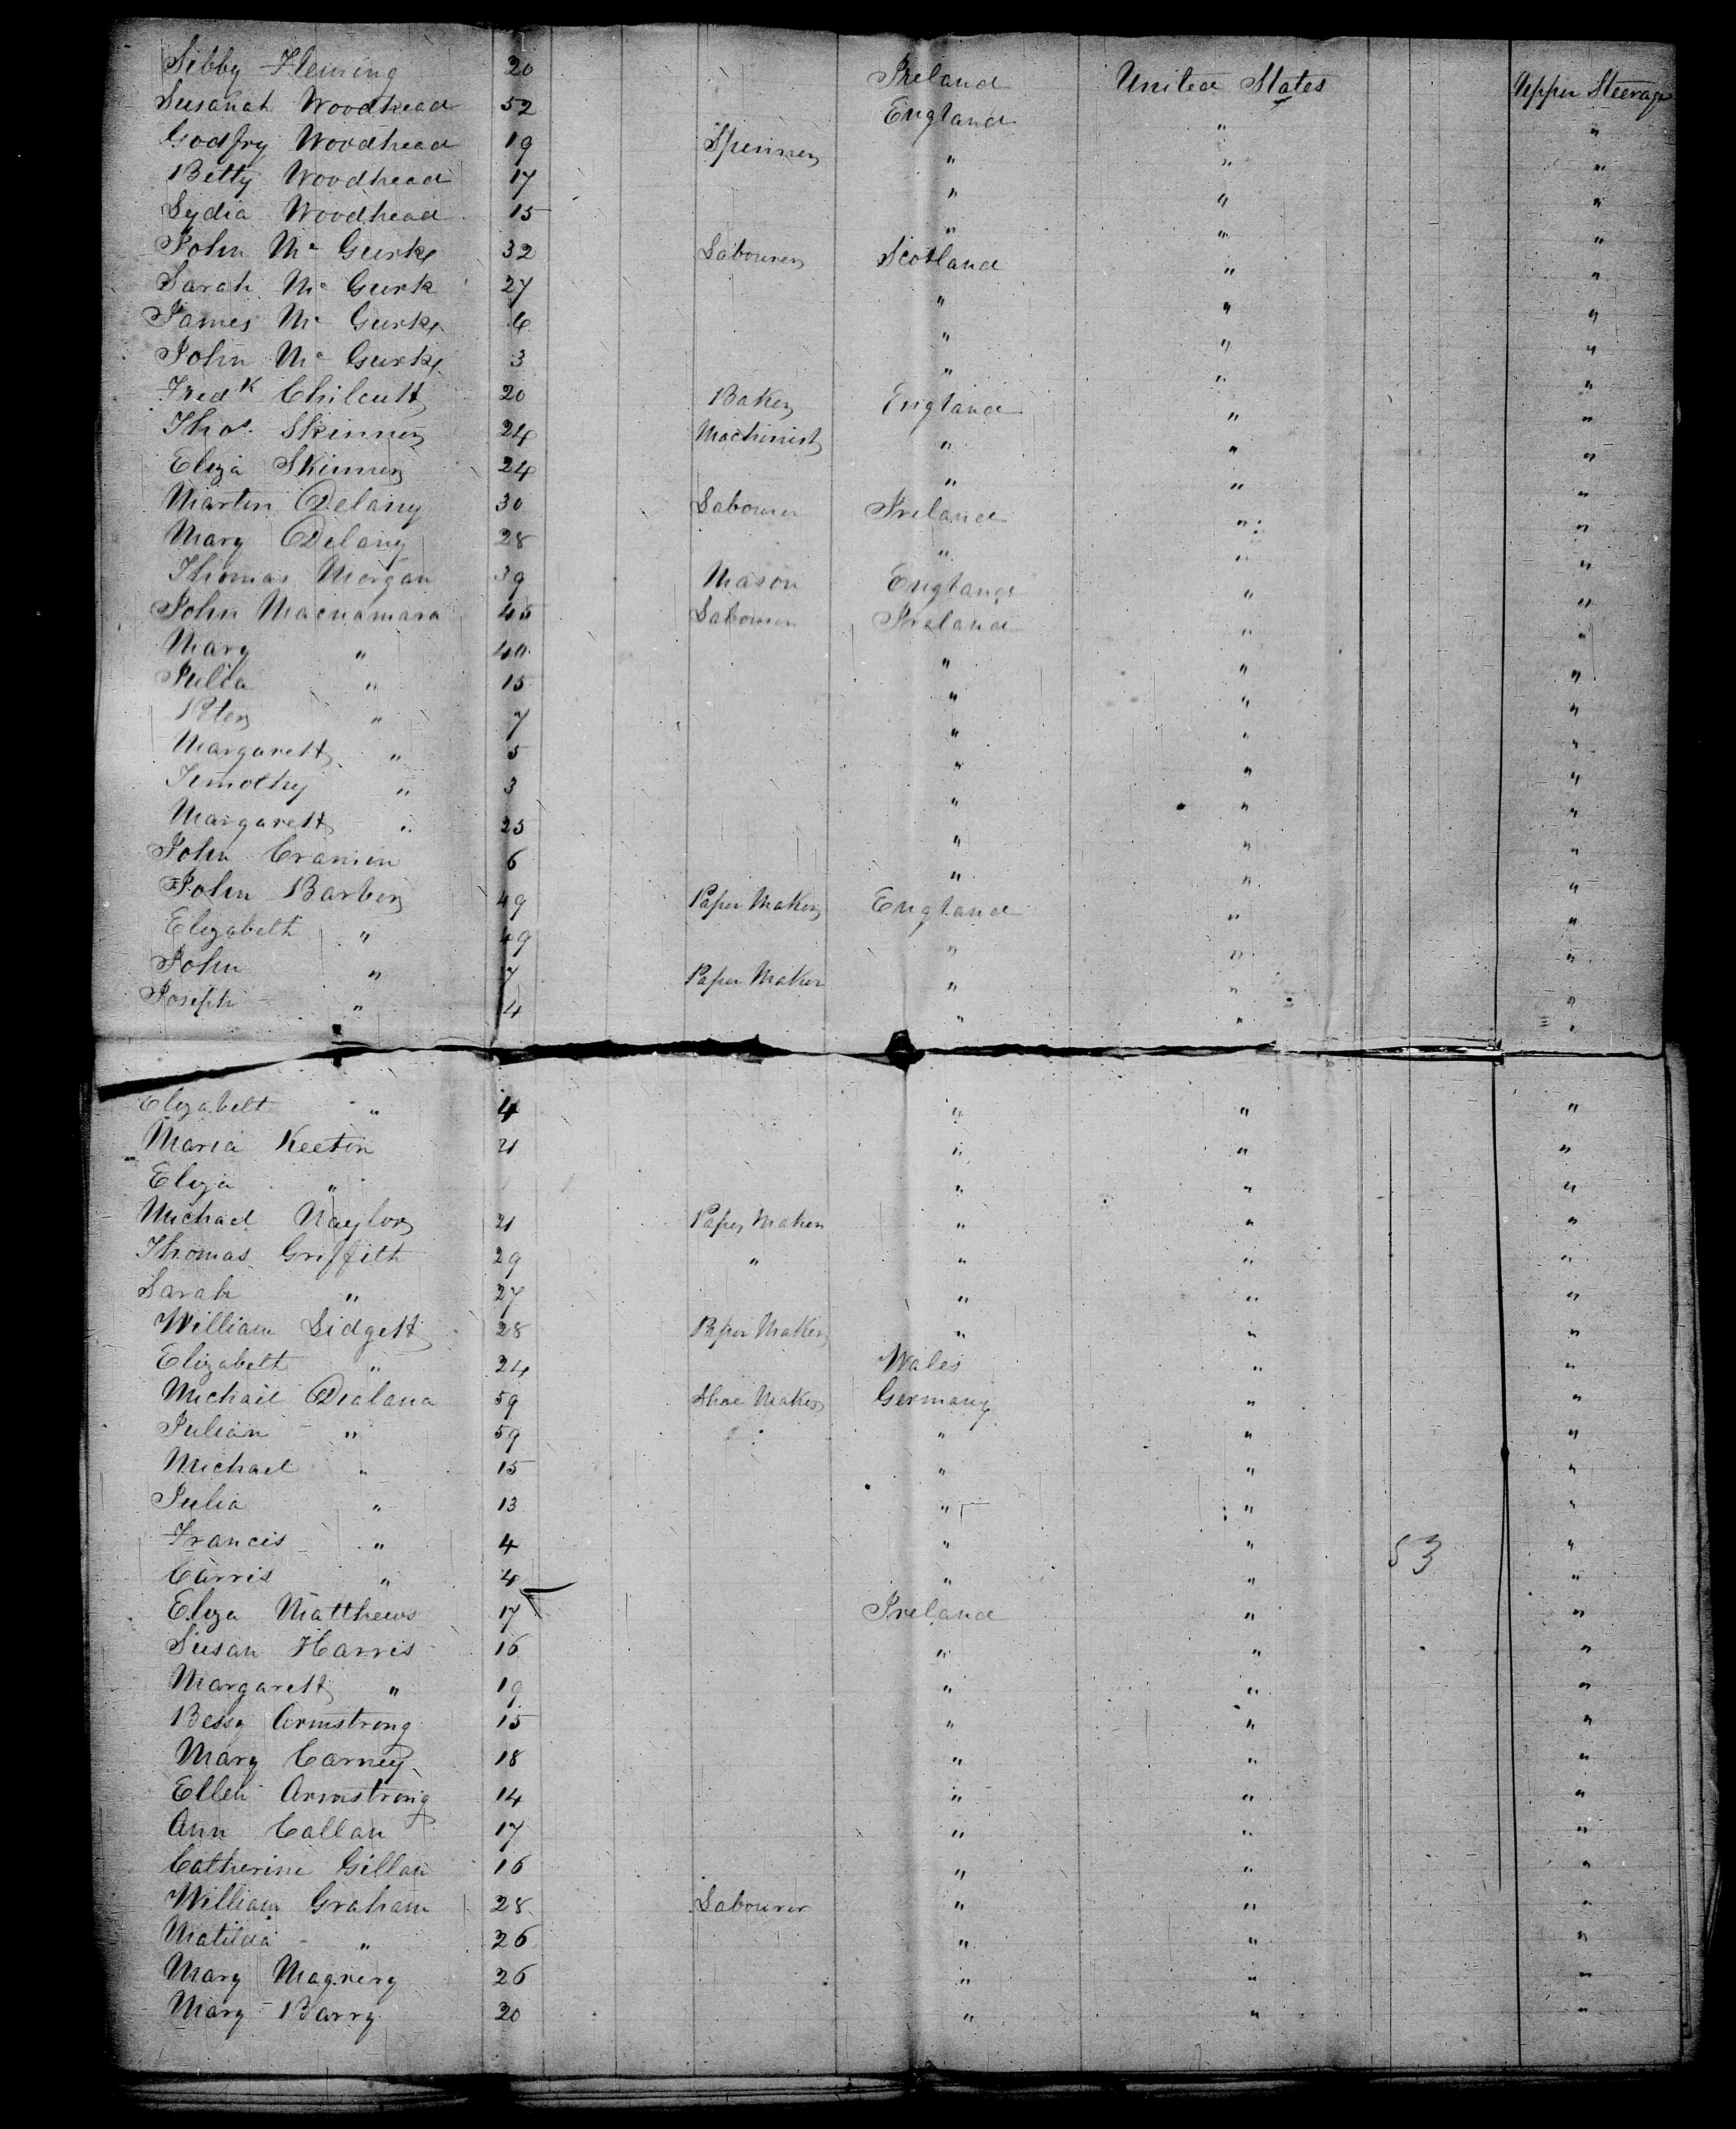 Sibby Fleming 20 Ireland United States Upper Steerage
Susanah Woodhead 52 England " "
Godfry Woodhead 19 Spinner " " "
Betty Woodhead 17 " " "
Lydia Woodhead 15 " " "
John Mc Gurk 32 Labourer Scotland " "
Sarah Mc Gurk 27 " " "
James Mc Gurk 6 " " "
John Mc Gurk 3 " " "
Fredk Chilcutt 20 Baker England " "
Thos. Skinner 24 Machinist " " "
Eliza Skinner 24 " " "
Martin Delany 30 Labourer Ireland " "
Mary Delany 28 " " "
Thomas Morgan 39 Mason England " "
John Macnamara 45 Labourer Ireland " "
Mary " 40 " " "
Julia " 15 " " "
Peter " 7 " " "
Margarett " 5 " " "
Timothy " 3 " " "
Margarett " 25 " " "
John Cramin 6 " " "
John Barber 49 Paper Maker England " "
Elizabeth " 49 " " "
John " 7 Paper Maker " " "
Joseph " 4 " " "
Elizabeth " 4 " " "
Maria Keeton 21 " " "
Eliza " " " "
Michael Naylor 21 Paper Maker " " "
Thomas Griffith 29 " " " "
Sarah " 27 " " "
William Lidgett 28 Paper Maker " " "
Elizabeth " 24 Wales " "
Michail Dialana 59 Shoe Maker Germany " "
Julian " 59 " " "
Michael " 15 " " "
Julia " 13 " " "
Francis " 4 " " 53 "
Carris " 4 " " "
Eliza Matthews 17 Ireland " "
Susan Harris 16 " " "
Margarett " 19 " " "
Bessy Armstrong 15 " " "
Mary Carney 18 " " "
Ellen Armstrong 14 " " "
Ann Callan 17 " " "
Catherine Gillan 16 " " "
William Graham 28 Labourer " " "
Matilda " 26 " " "
Mary Magnery 26 " " "
Mary Barry 20 " " "